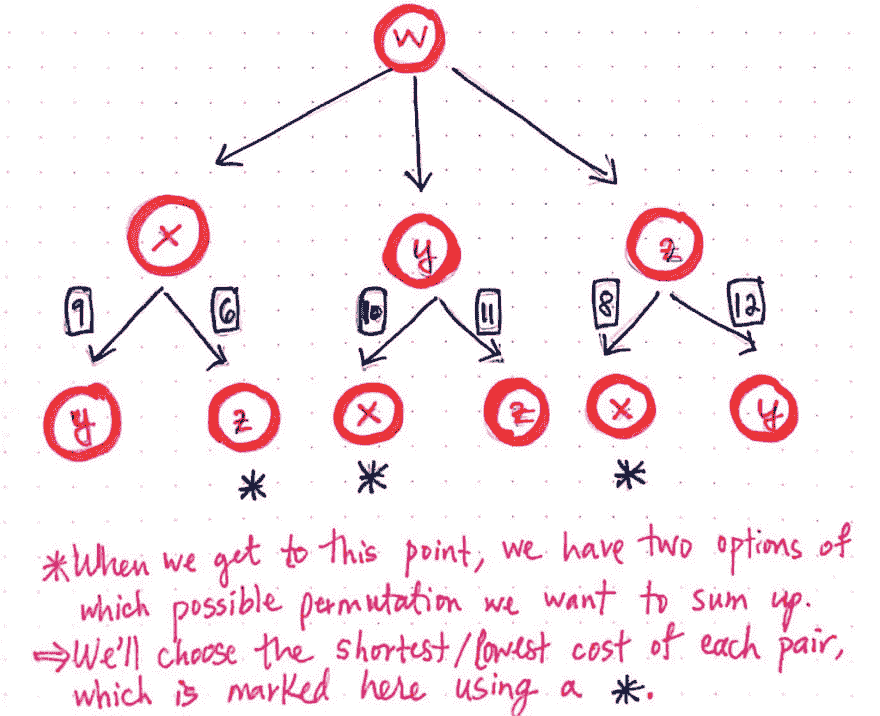 w
x y z
9 6 10 11 8 12
y z x z x y
* * *
*When we get to this point, we have two options of
which possible permutation we want to sum up.
⇒We'll choose the shortest/lowest cost of each pair,
which is marked here using a *.